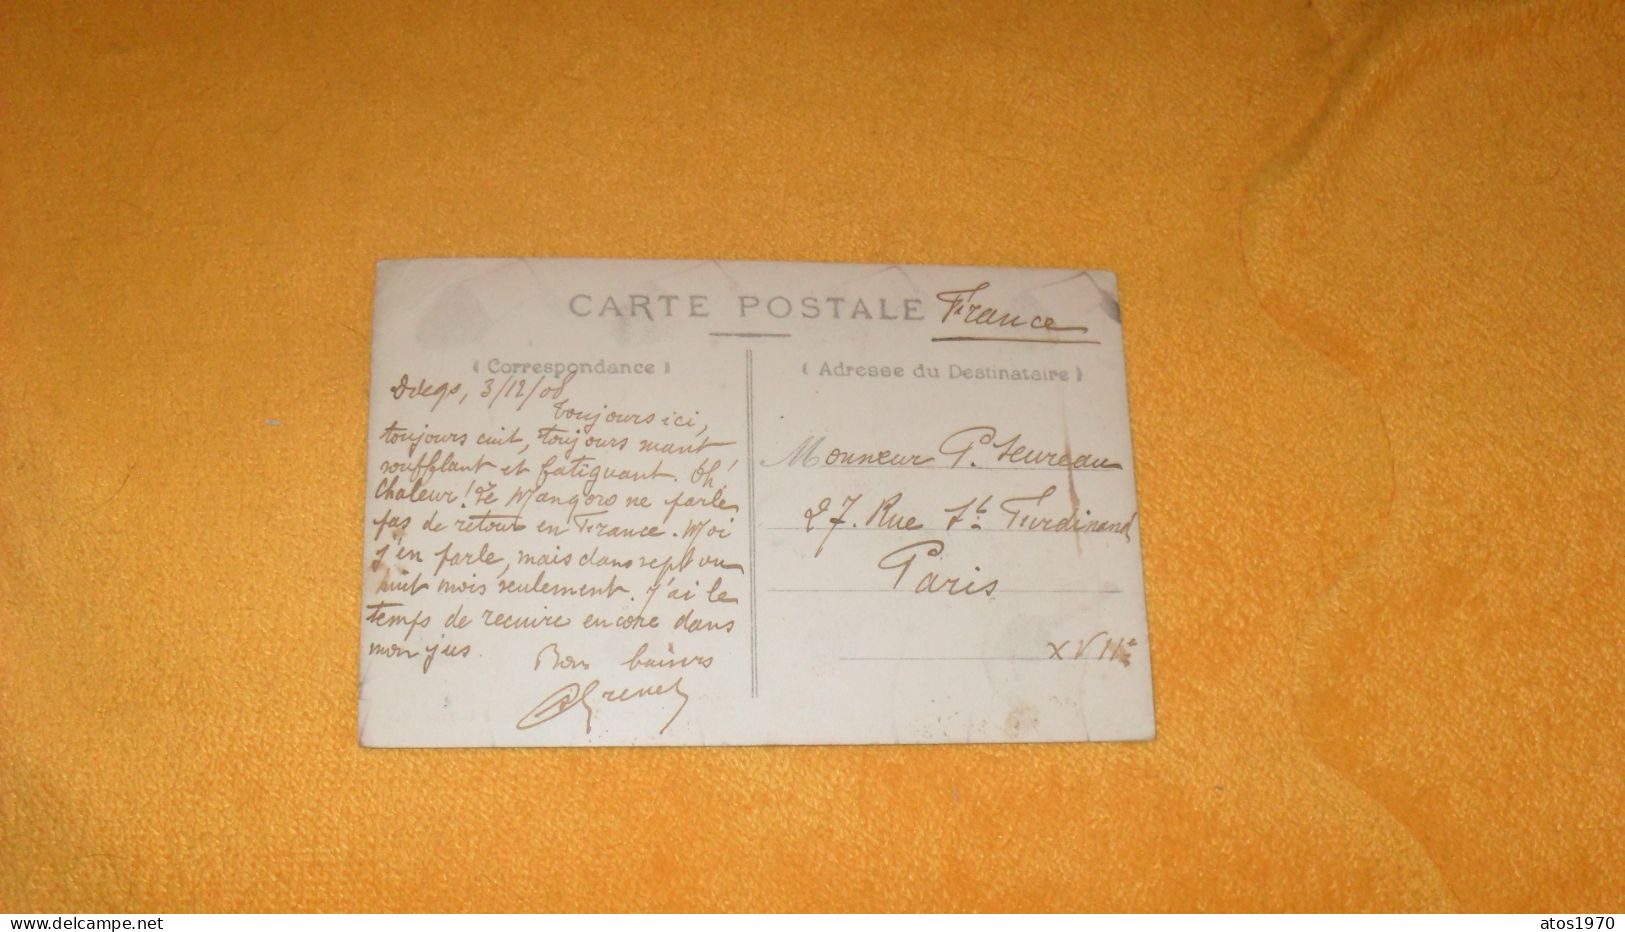 CARTE POSTALE France
( Correspondance )
( Adresse du Destinataire )
Diego, 3/12/08
Toujours ici,
toujours cuit, toujours suant
soufflant et fatiguant. Oh!
Chaleur! Le Mangoro ne parle
pas de retour en France. Moi
j'en parle, mais dans sept ou
huit mois seulement. J'ai le
temps de recuire encore dans
mon jus.
Bons baisers
Grenet
Monsieur P. Seureau
27. Rue St. Ferdinand
Paris
XVIIe
www.delcampe.net
atos1970